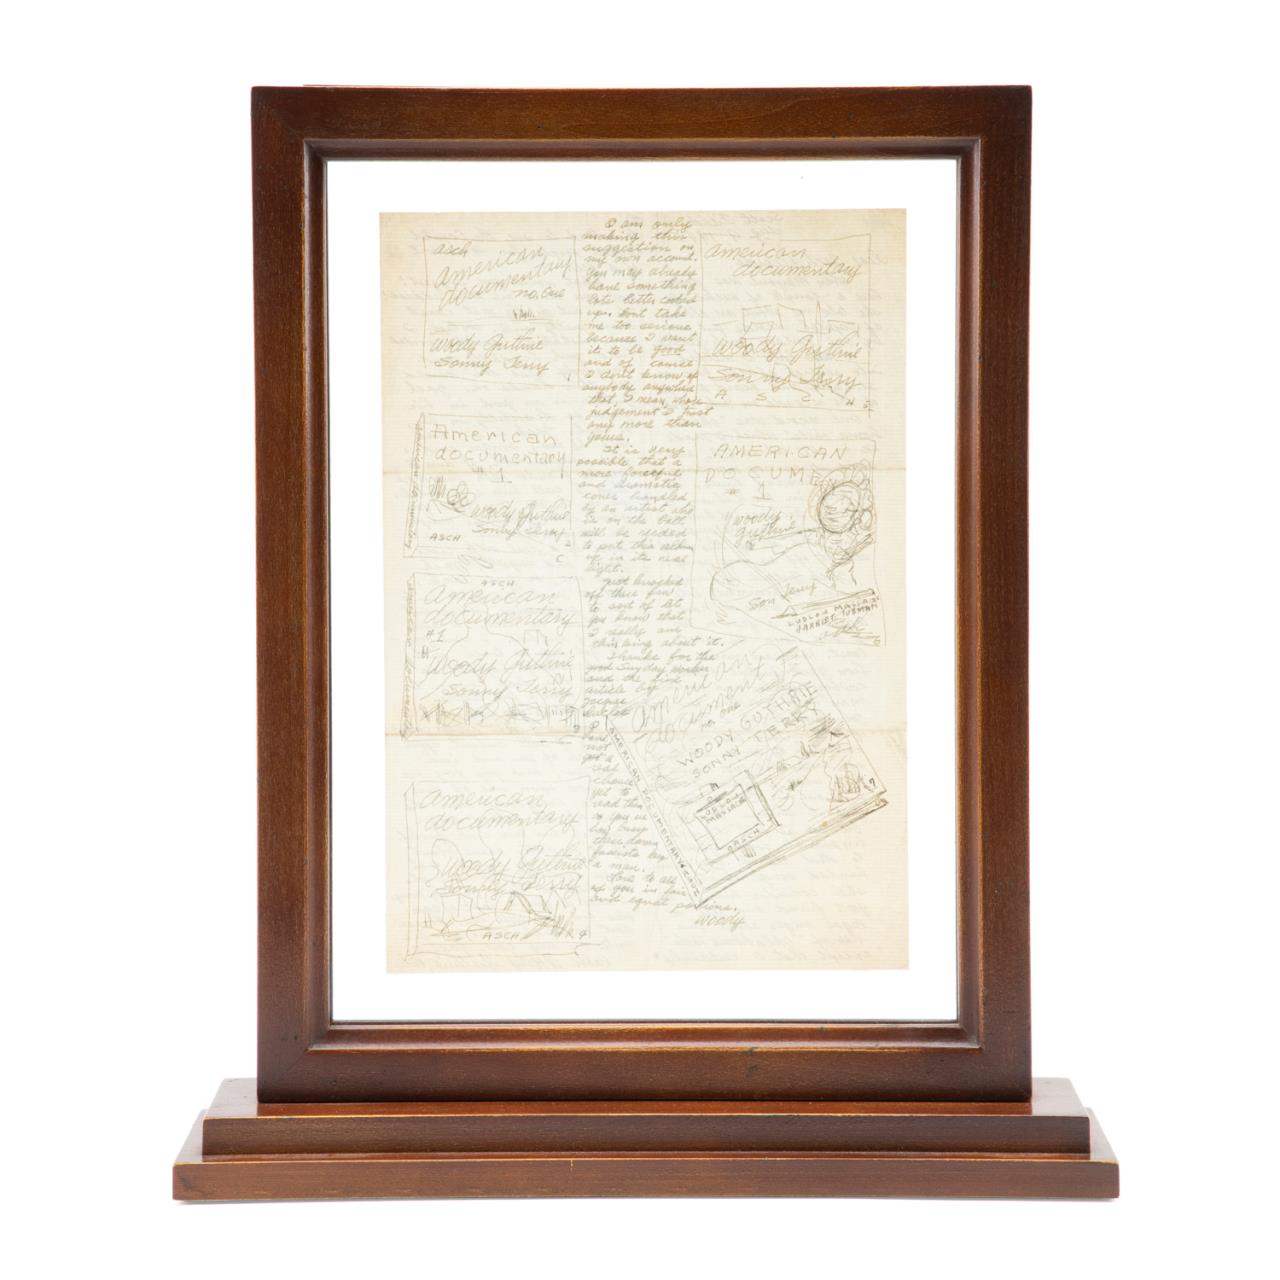 asch
american
documentary
no. one
Woody Guthrie
Sonny Terry
American
documentary
#1
Woody Guthrie
Sonny Terry
ASCH
ASCH
american
documentary
#1
Woody Guthrie
Sonny Terry
american
documentary
Woody Guthrie
Sonny Terry
ASCH
I am only
making this
suggestion on
my own account.
You may already
have something
lots better cooked
up. Dont take
me too serious
because I want
it to be good
and of course
I don't know of
anybody anywhere
that, I mean, whose
judgement I trust
any more than
yours.
It is very
possible that a
more forceful
and dramatic
cover handled
by an artist who
is on the ball
will be needed
to put this album
up in its real
light.
Just knocked
off these few
to sort of let
you know that
I really am
thinking about it.
Thanks for the
good Sunday worker
and the fine
article by
I
have
not
got a
real
chance
yet to
read this
as you us
busy
these damn
fascists keep
a man.
Love to all
of you in fair
and equal portions.
Woody
american
documentary
Woody Guthrie
Sonny Terry
ASCH
AMERICAN
DOCUMEN
# 1
Woody
Guthrie
Son Terry
LUDLOW MASSA
HARRIET TUBMAN
6
no. one
WOODY GUTHRIE
SONNY TERRY
LUDLOW
MASSACRE
ASCH
7
AMERICAN DOCUMENTARY